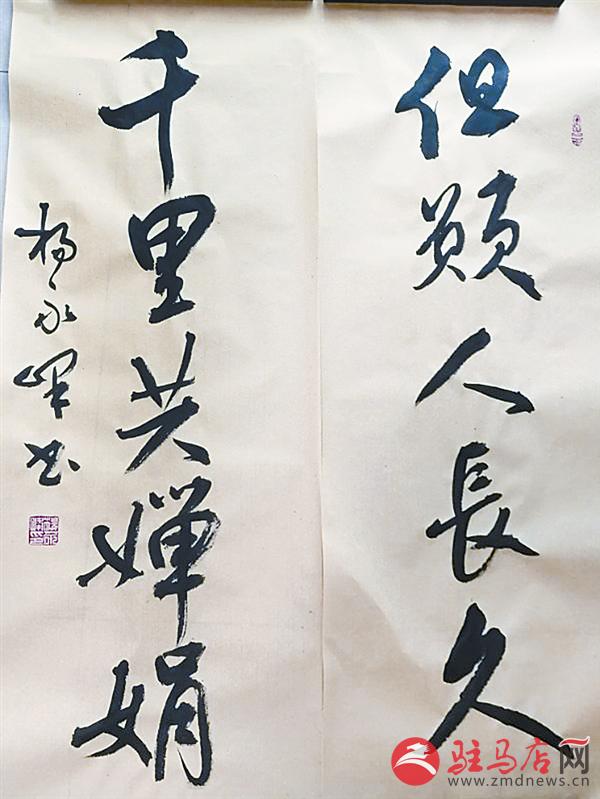 但願人長久
千里共嬋娟
杨永峰书
驻马店网
www.zmdnews.cn